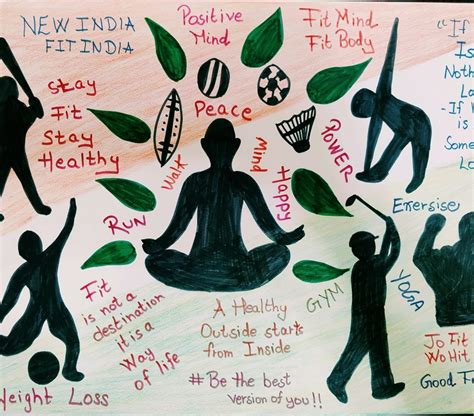 NEW INDIA
FIT INDIA
Positive
Mind
Fit Mind
Fit Body
"If
Is
Noth
La
-If W
is
Some
Lo
Stay
Fit
Stay
Healthy
Peace
Walk
Mind
Happy
POWER
RUN
Exercise
Fit
is not a
destination
it is a
Way
of life
A Healthy
Outside starts
from Inside
# Be the best
version of you!!
GYM
YOGA
Weight Loss
Jo Fit
Wo Hit
Good F